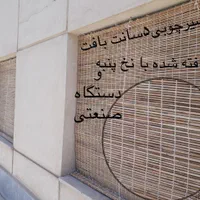 سرچوبی ۵سانت بافت
فته شده با نخ پنبه
و
دستگاه
صنعتی